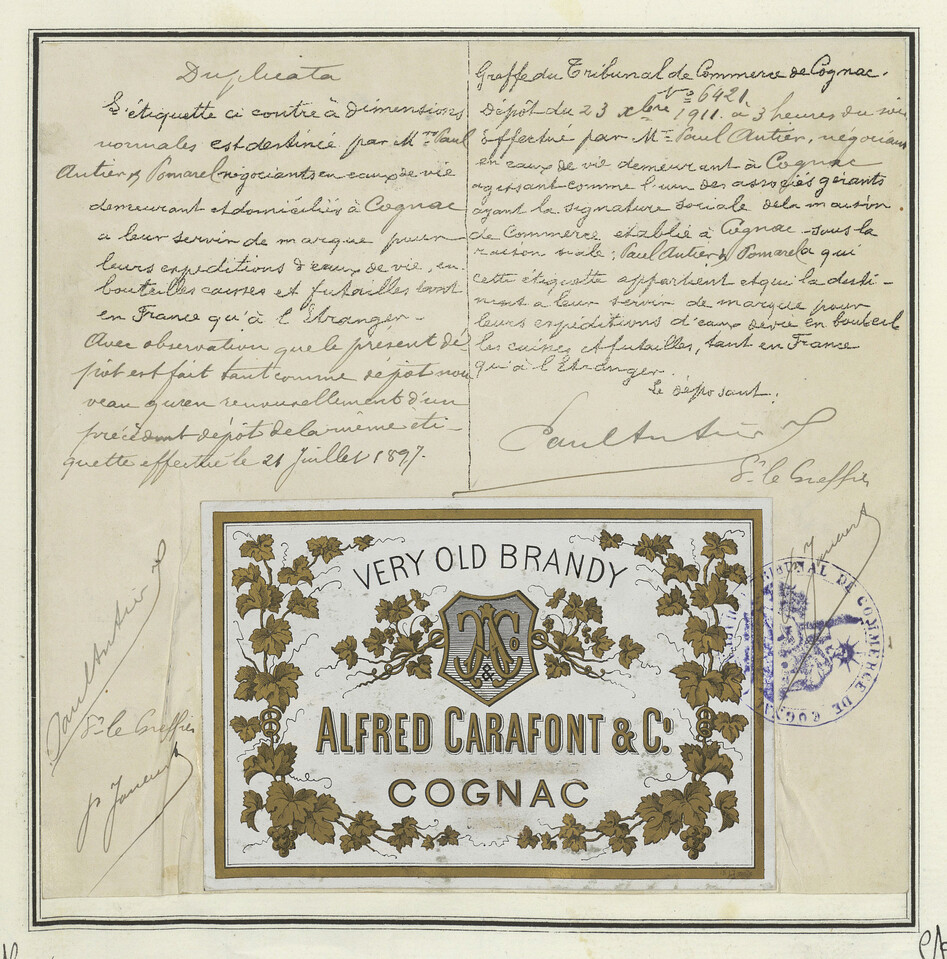 Duplicata
L'étiquette ci contre à dimensions
normales est destinée par Mrs Paul
Antier & Pomarel négociants en eaux de vie
demeurant et domiciliés à Cognac
a leur servir de marque pour
leurs expeditions d'eaux de vie, en
bouteilles caisses et futailles tant
en France qu'à l'Etranger -
Avec observation que le présent dé
pôt est fait tant comme dépôt nou
veau qu'en renouvellement d'un
précédent dépôt de la même éti-
quette effectué le 21 Juillet 1897.
Greffe du Tribunal de Commerce de Cognac.
No 6421
Dépôt du 23 xbre 1911 à 3 heures du soir
effectué par Mr Paul Antier, négociant
en eaux de vie demeurant à Cognac
agissant comme l'un des associés gérants
ayant la signature sociale de la maison
de Commerce établie à Cognac sous la
raison sociale: Paul Antier & Pomarel a qui
cette étiquette appartient et qui la desti-
nent a leur servir de marque pour
leurs expéditions d'eaux de vie en bouteil
les caisses et futailles, tant en France
qu'à l'Etranger.
Le déposant.
Paul Antier
Pr le Greffier
Paul Antier
Pr le Greffier
VERY OLD BRANDY
A & Co
ALFRED CARAFONT & Co.
COGNAC
TRIBUNAL DE COMMERCE DE COGNAC